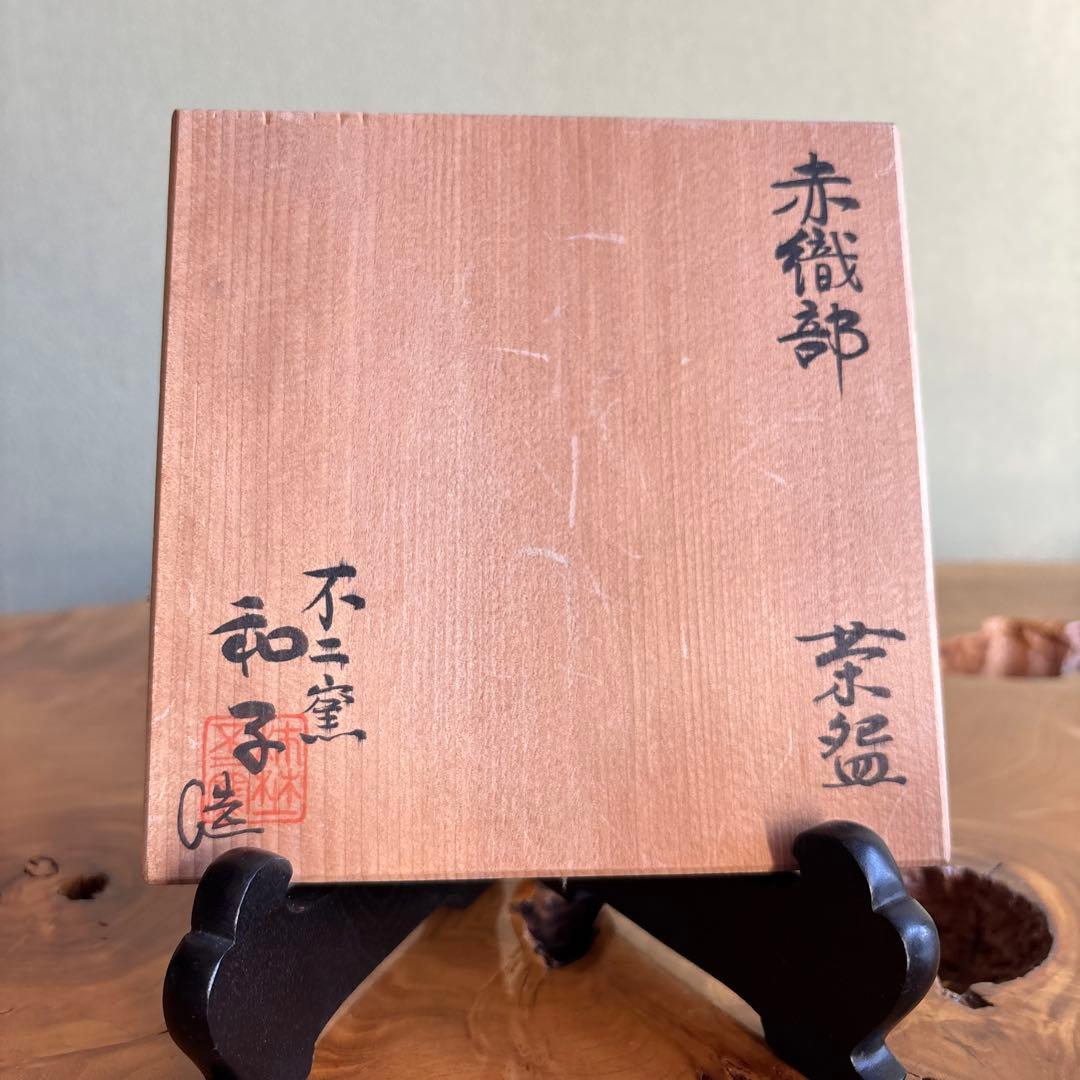 赤織部
茶盌
不二窯
和子造